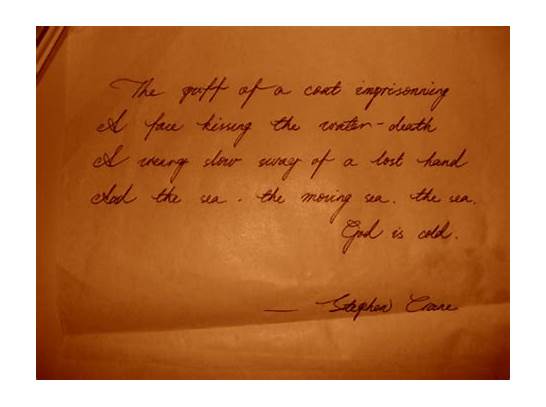 The puff of a coat imprisonning
A face kissing the water-death
A weary slow sway of a lost hand
And the sea. the moving sea. the sea.
God is cold.
— Stephen Crane